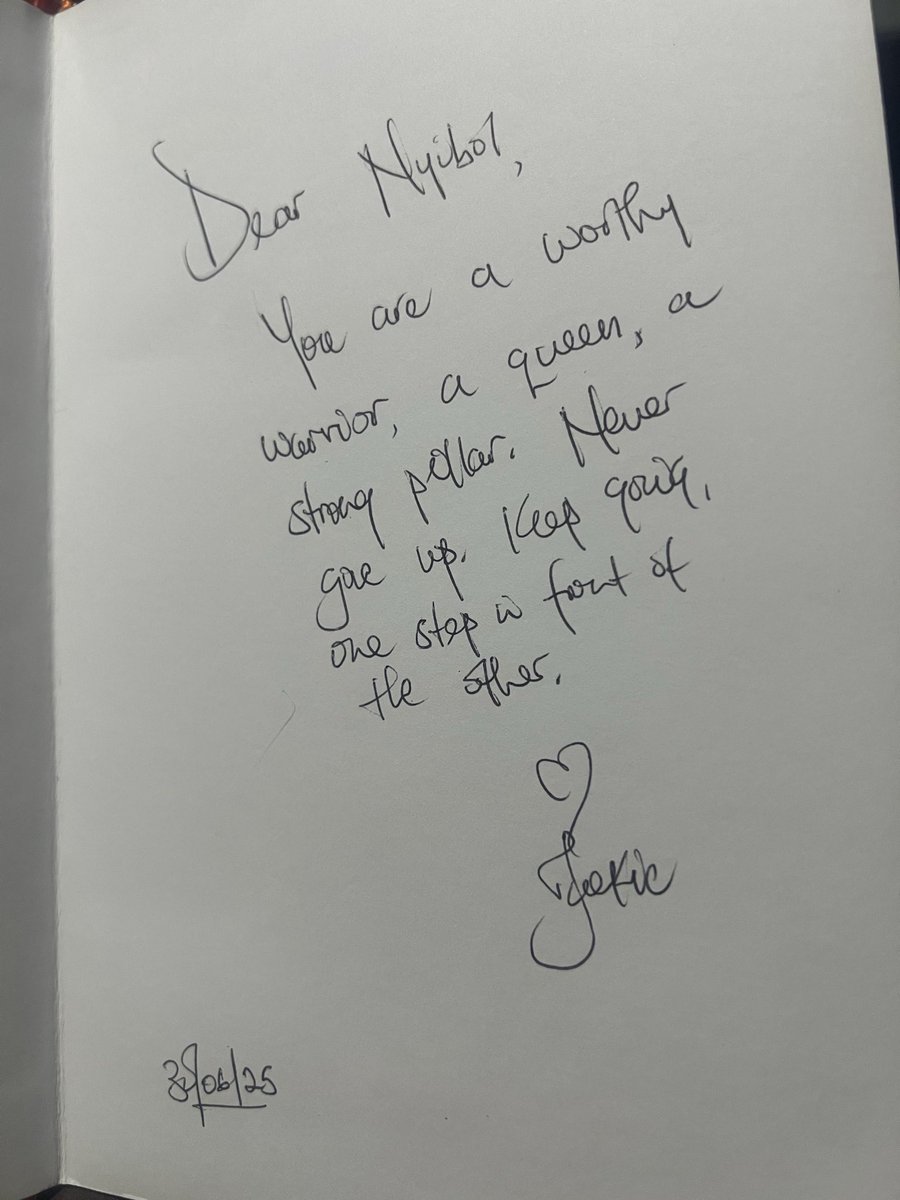 Dear Nyibol,
You are a worthy
warrior, a queen, a
strong pillar. Never
give up. Keep going,
one step in front of
the other.